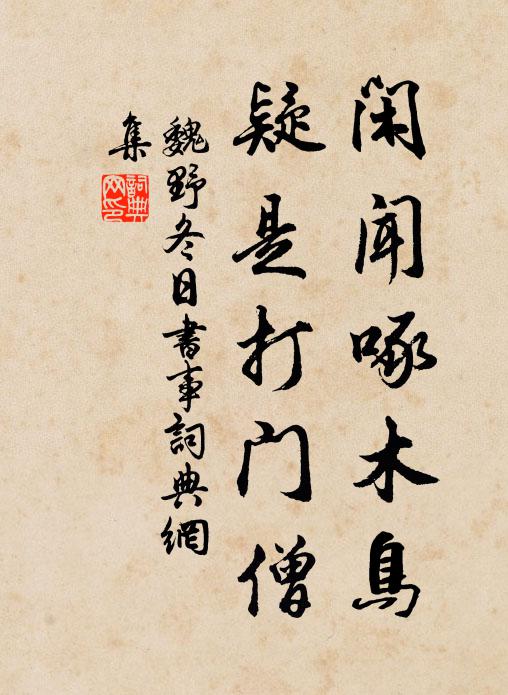 闲闻啄木鸟
疑是打门僧
魏野冬日書事詞典網
集
詞典
网印